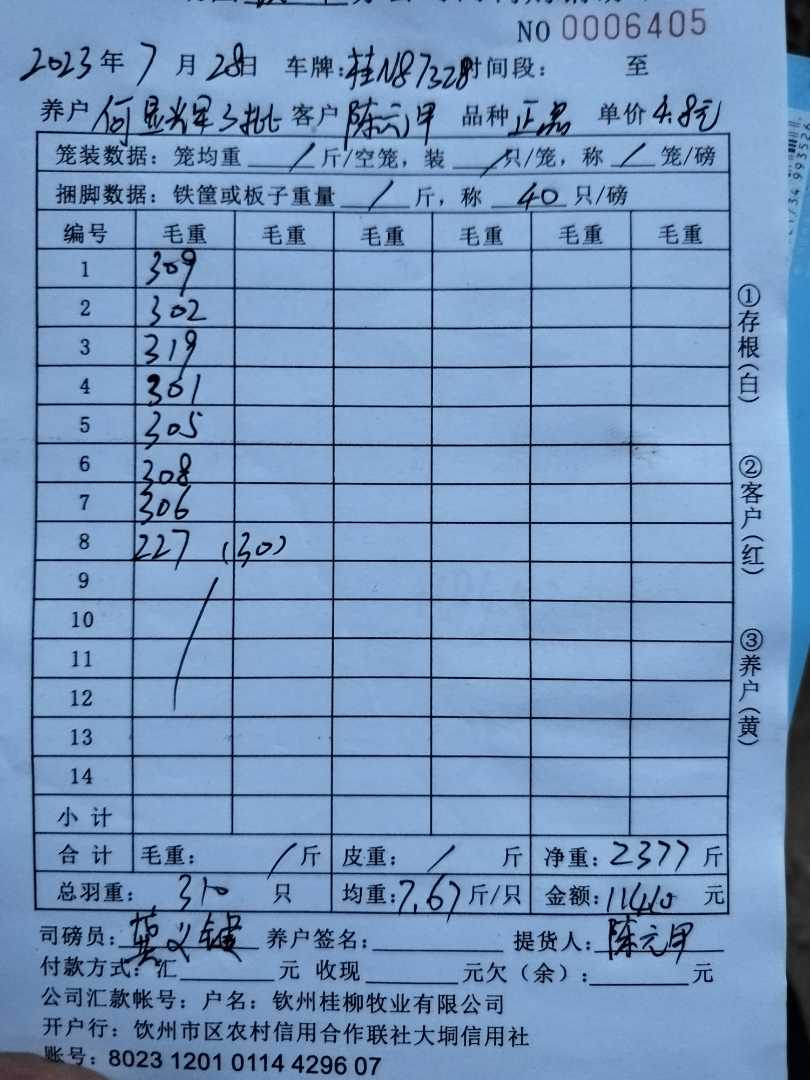 NO 0006405
2023年 7月 28日 车牌:桂N87328 时间段: 至
养户 何显光军3批 客户 陈元甲 品种 正品 单价 4.8元
笼装数据: 笼均重 / 斤/空笼, 装 / 只/笼, 称 / 笼/磅
捆脚数据: 铁筐或板子重量 / 斤, 称 40 只/磅
编号 毛重 毛重 毛重 毛重 毛重 毛重
1 309
2 302
3 319
4 301
5 305
6 308
7 306
8 227 (30)
9
10
11
12
13
14
小计
合计 毛重: / 斤 皮重: / 斤 净重: 2377 斤
总羽重: 310 只 均重: 7.67 斤/只 金额: 11410 元
司磅员: 莫义键 养户签名: 提货人: 陈元甲
付款方式: 汇 元 收现 元欠(余): 元
公司汇款帐号: 户名: 钦州桂柳牧业有限公司
开户行: 钦州市区农村信用合作联社大垌信用社
账号: 8023 1201 0114 4296 07
①存根(白)
②客户(红)
③养户(黄)